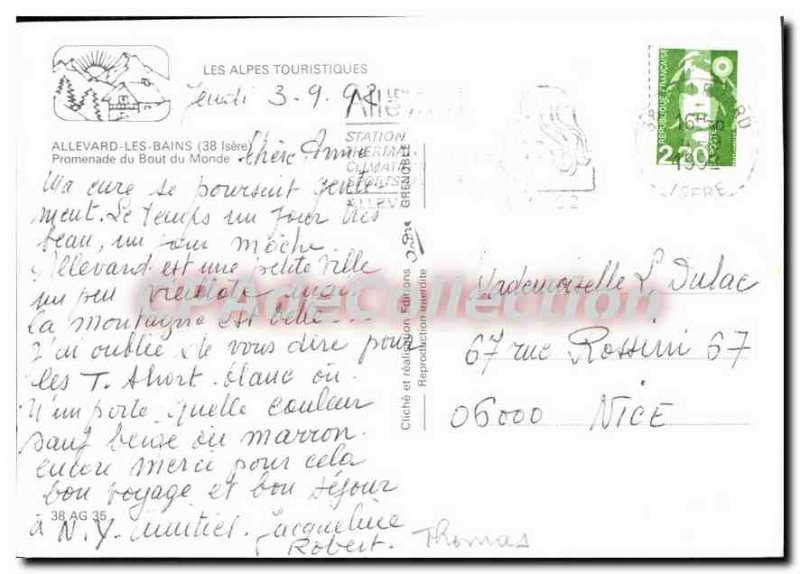 LES ALPES TOURISTIQUES
Jeudi 3.9.92
ALLEVARD-LES-BAINS (38 Isère)
Promenade du Bout du Monde
Chère Amie
Ma cure se poursuit gente
ment. Le temps un jour très
beau, un jour moche.
Allevard est une petite ville
un peu vieillote mais
la montagne est belle...
J'ai oublié de vous dire pour
les T. Short. blanc ou
N'importe quelle couleur
sauf beige ou marron.
encore merci pour cela
bon voyage et bon séjour
à N.Y. Amitiés. Jacqueline
Robert. Thomas
38 AG 35
Cliché et réalisation Editions
GRENOBLE
Reproduction interdite
STATION
THERMALE
REPUBLIQUE FRANÇAISE
2,20
POSTES
16H
ISERE
Mademoiselle L Dulac
67 rue Rossini 67
06000 NICE
CPADeCollection